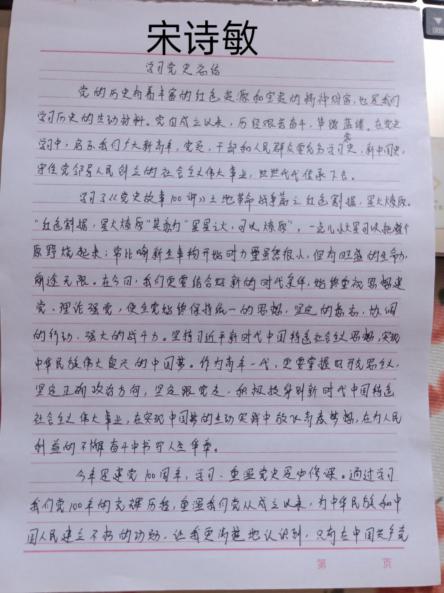 宋诗敏
学习党史总结
党的历史有着丰富的红色资源和宝贵的精神财富,也是我们
学习历史的生动材料。党自成立以来,历经艰苦奋斗,筚路蓝缕。在党史
学习中,启示我们广大新青年,党员,干部和人民群众要学习党史,新中国史,
守住党领导人民创立的社会主义伟大事业,世世代代传承下去。
学习了《党史故事100讲》土地革命战争篇之红色割据,星火燎原。
“红色割据,星火燎原”其意为“星星之火,可以燎原”,一点儿小火星可以把整个
原野烧起来;常比喻新生事物开始时力量虽然很小,但有旺盛的生命力,
前途无限。在今日,我们更要结合好新的时代条件,始终重视思想建
党、理论强党,使全党始终保持统一的思想,坚定的意志,协调
的行动,强大的战斗力。坚持习近平新时代中国特色社会主义思想,实现
中华民族伟大复兴的中国梦。作为青年一代,更要掌握好马克思主义,
坚定正确政治方向,坚定跟党走,积极投身到新时代中国特色
社会主义伟大事业,在实现中国梦的生动实践中放飞青春梦想,在为人民
利益的不懈奋斗中书写人生华章。
今年是建党100周年,学习、重温党史是必修课。通过学习
我们党100年的光辉历程,重温我们党从成立以来,为中华民族和中
国人民建立不朽的功勋,让我更清楚地认识到,只有在中国共产党
第 页